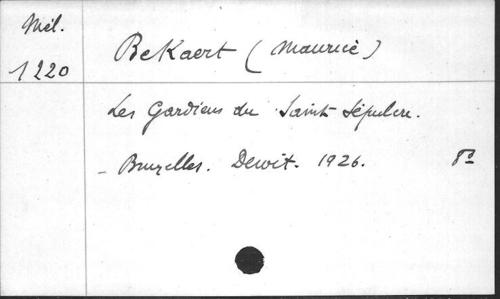 Mél.
1220
Bekaert (Maurice)
Les Gardiens du Saint Sépulcre.
- Bruxelles. Dewit. 1926. 8°